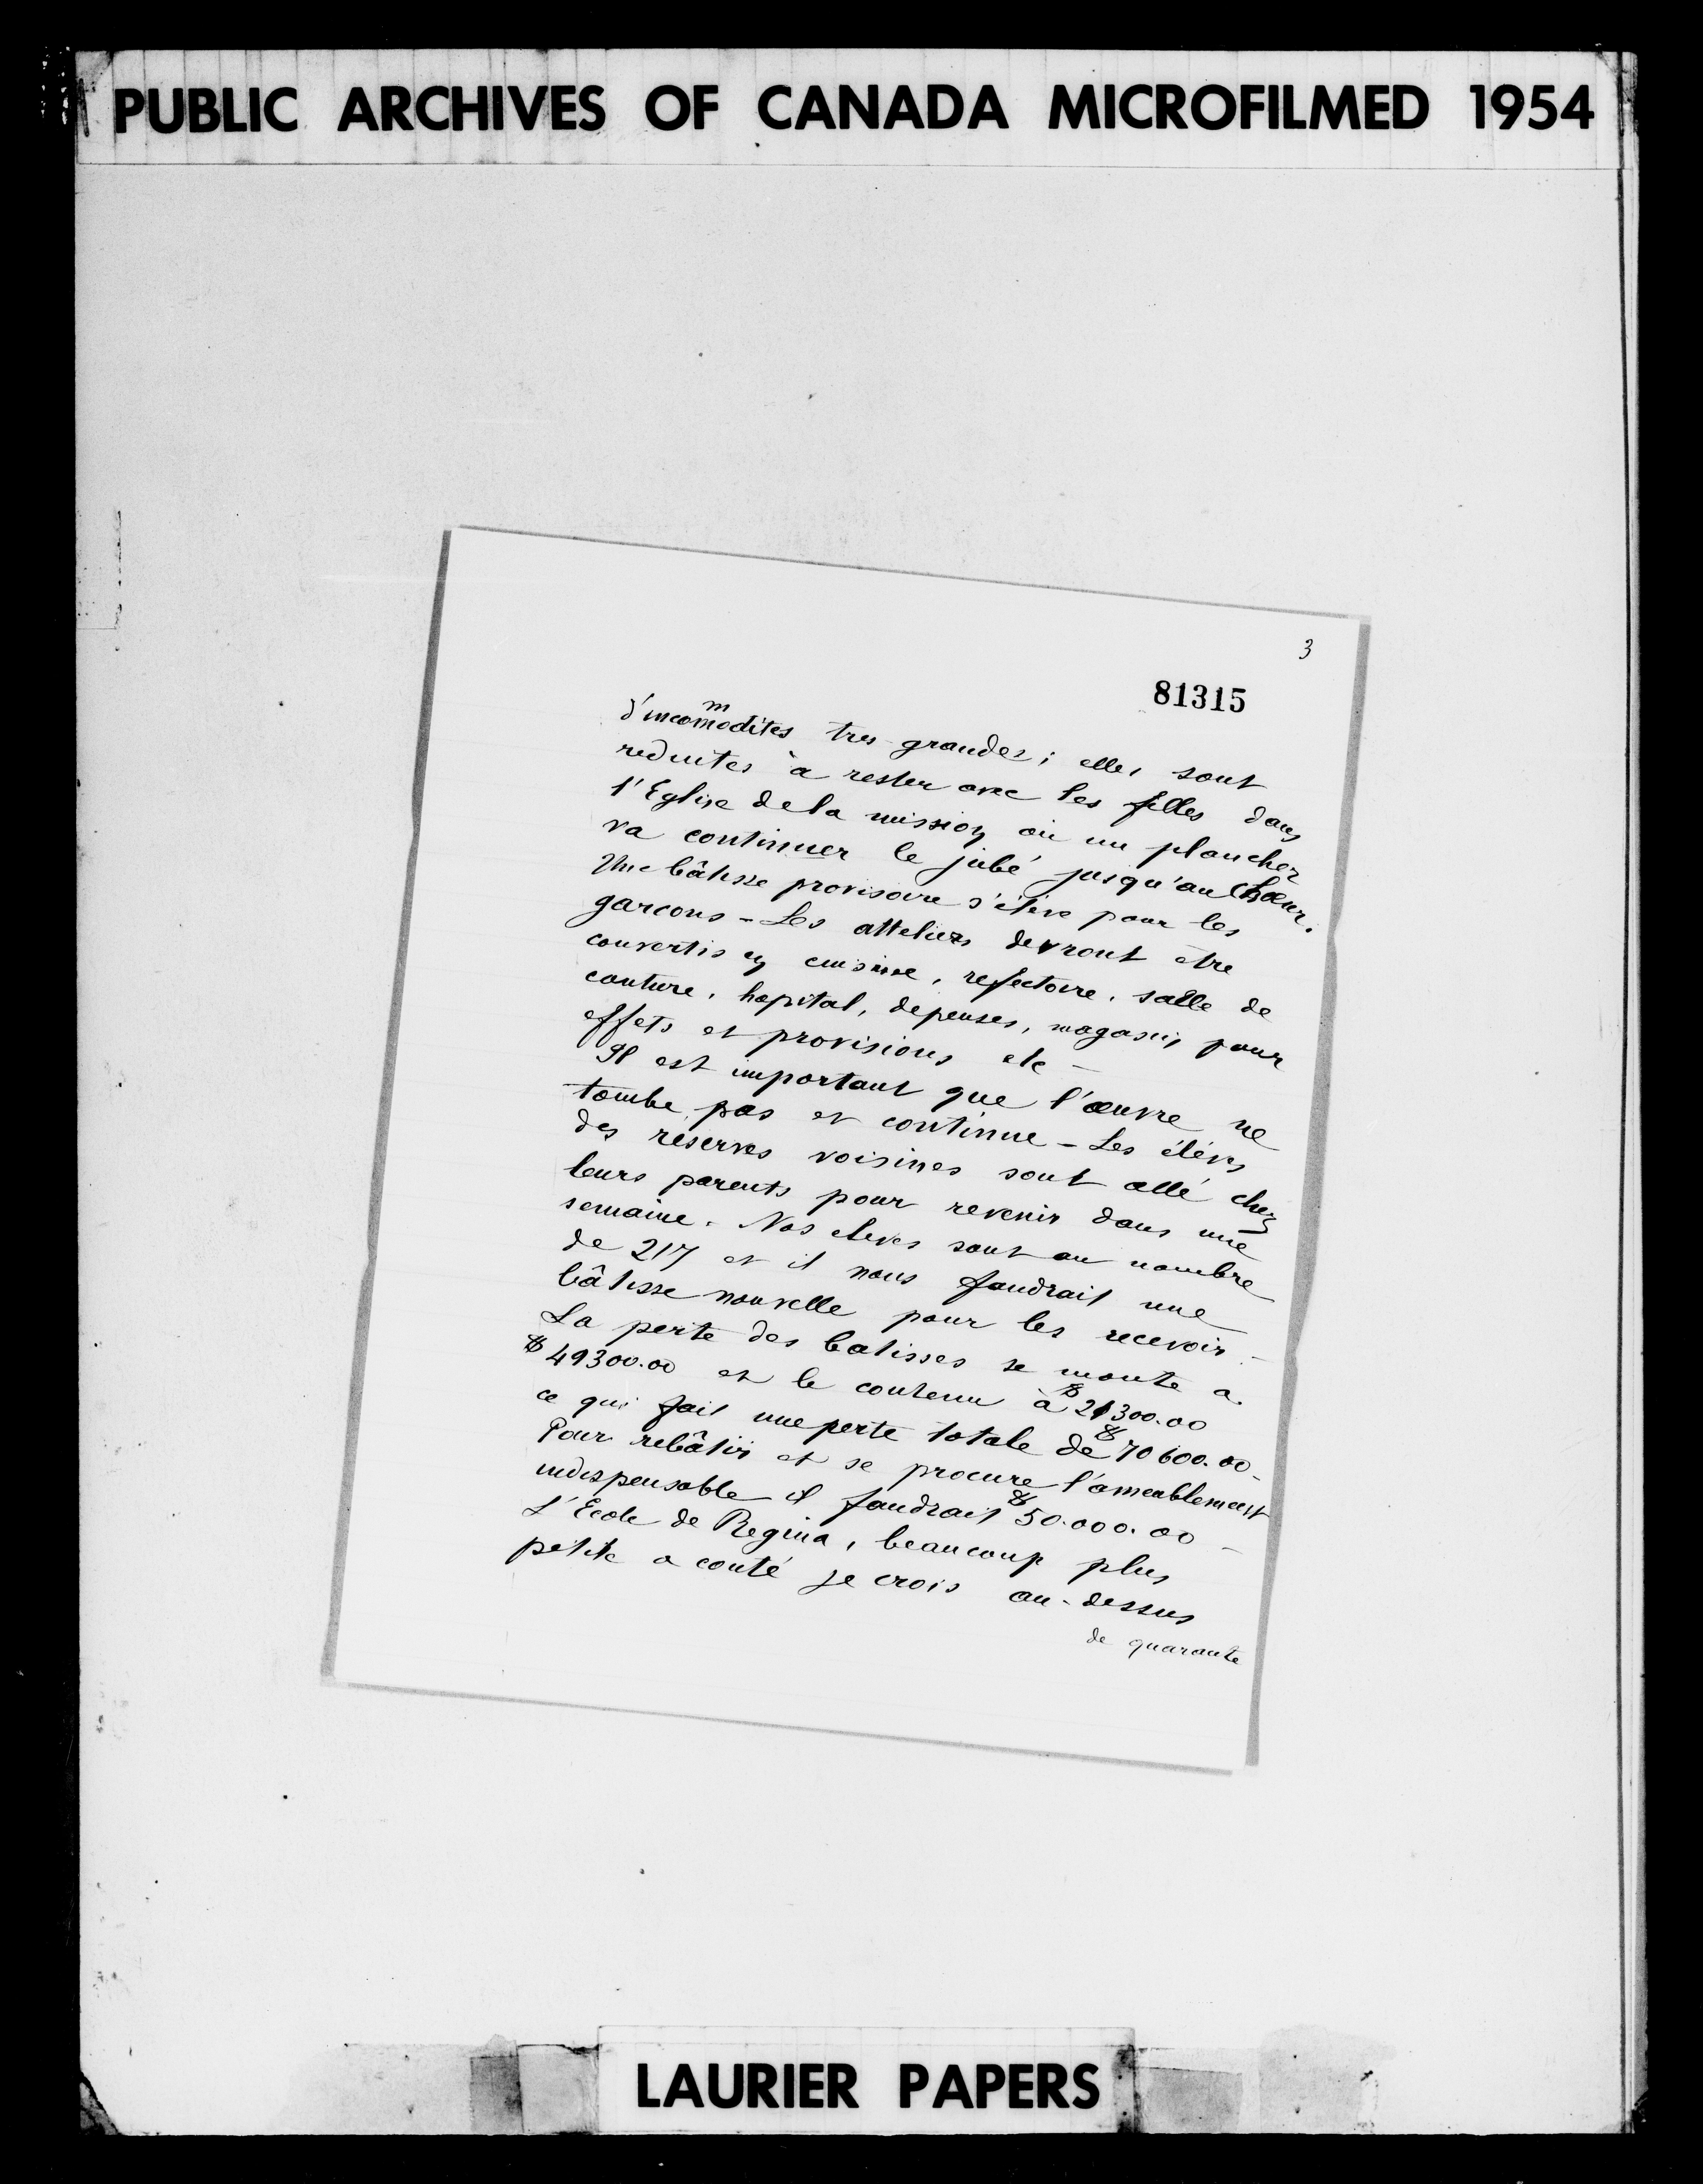 PUBLIC ARCHIVES OF CANADA MICROFILMED 1954
3
81315
d'incommodites tres grandes; elles sont
reduites à rester avec les filles dans
l'Eglise de la mission où un plancher
va continuer le jubé jusqu'au Choeur.
Une bâtisse provisoire s'élève pour les
garcons - Les atteliers devront etre
convertis en cuisine, refectoire, salle de
couture, hopital, depenses, magasin pour
effets et provisions etc -
Il est important que l'œuvre ne
tombe pas et continue - Les élèves
des reserves voisines sont allé chez
leurs parents pour revenir dans une
semaine. Nos eleves sont au nombre
de 217 et il nous faudrait une
bâtisse nouvelle pour les recevoir -
La perte des batisses se monte a
$49300.00 et le contenu à $21300.00
ce qui fait une perte totale de $70600.00 -
Pour rebâtir et se procure l'ameublement
indispensable il faudrait $50.000.00 -
L'Ecole de Regina, beaucoup plus
petite a couté je crois au-dessus
de quarante
LAURIER PAPERS